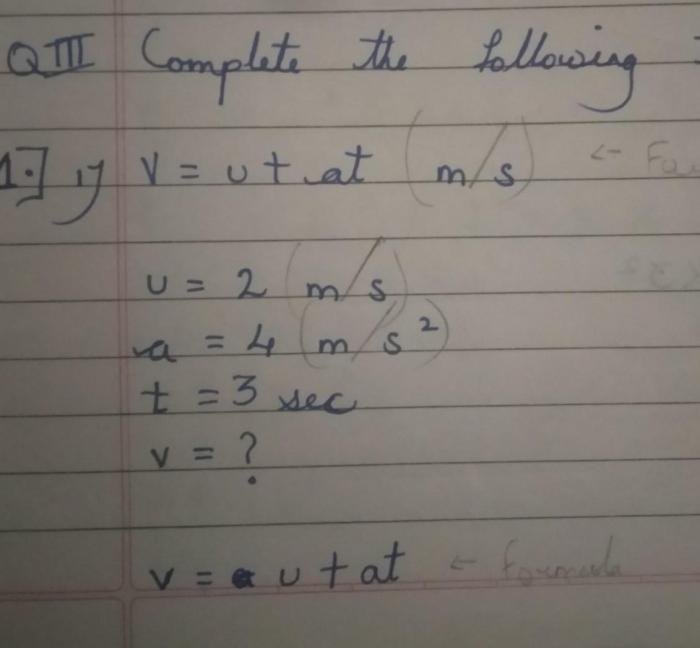 QIII Complete the following :
1.] 1) V = u + at (m/s) ←
u = 2 (m/s)
a = 4 (m/s²)
t = 3 sec
v = ?
v = u + at ← formula